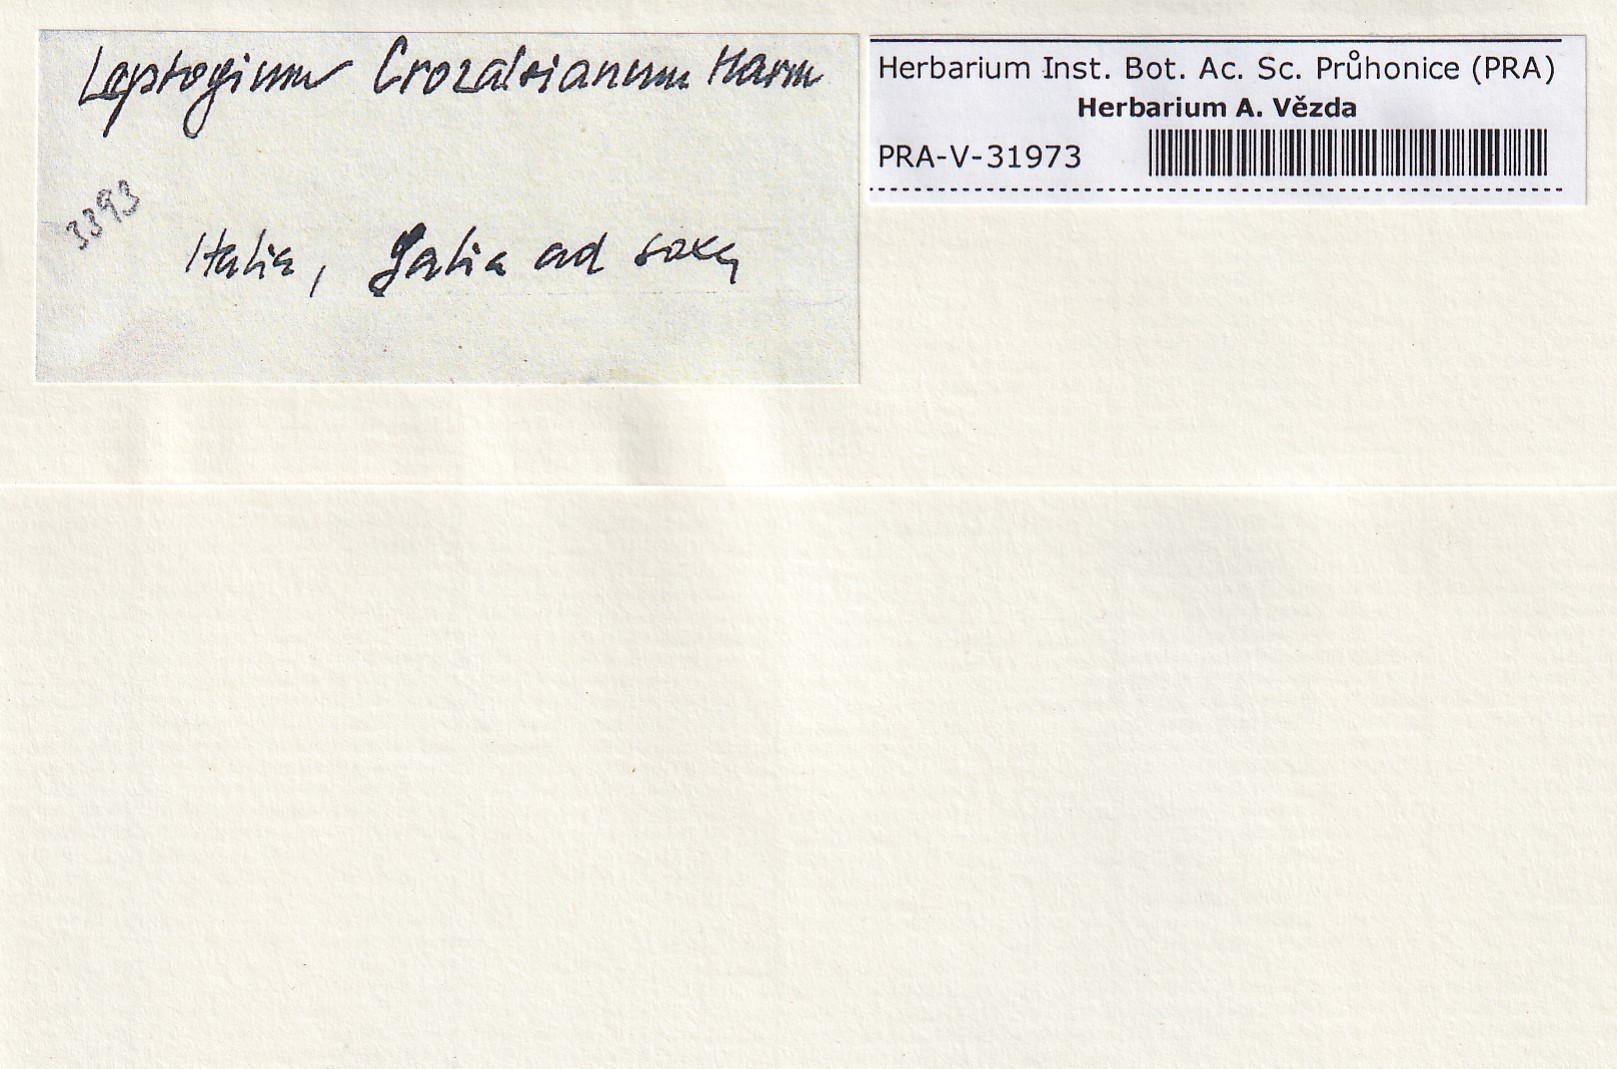 Leptogium Crozalsianum Harm
3393
Italia, Galia ad saxa
Herbarium Inst. Bot. Ac. Sc. Průhonice (PRA)
Herbarium A. Vězda
PRA-V-31973